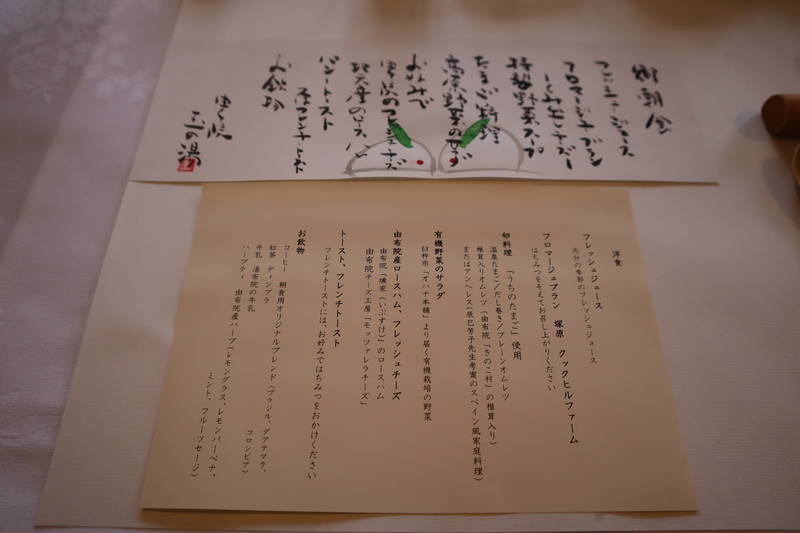 御朝食
フレッシュジュース
フロマージュブラン
特製野菜スープ
たまご料理
高原野菜のサラダ
お飲物
ゆふ院
玉の湯
洋食
フレッシュジュース
大分の季節のフレッシュジュース
フロマージュブラン 塚原 クックヒルファーム
はちみつをそえてお召し上がりください
卵料理 「うちのたまご」使用
温泉たまご／だし巻き／プレーンオムレツ
椎茸入りオムレツ（由布院「きのこ村」の椎茸入り）
またはアンヘレス（辰巳芳子先生考案のスペイン風家庭料理）
有機野菜のサラダ
臼杵市「オハナ本舗」より届く有機栽培の野菜
由布院産ロースハム、フレッシュチーズ
由布院「燻家（いぶすけ）」のロースハム
由布院チーズ工房「モッツァレラチーズ」
トースト、フレンチトースト
フレンチトーストには、お好みではちみつをおかけください
お飲物
コーヒー 朝食用オリジナルブレンド（ブラジル、グアテマラ、
コロンビア）
紅茶 ディンブラ
牛乳 湯布院の牛乳
ハーブティ 由布院産ハーブ（レモングラス、レモンバーベナ、
ミント、フルーツセージ）